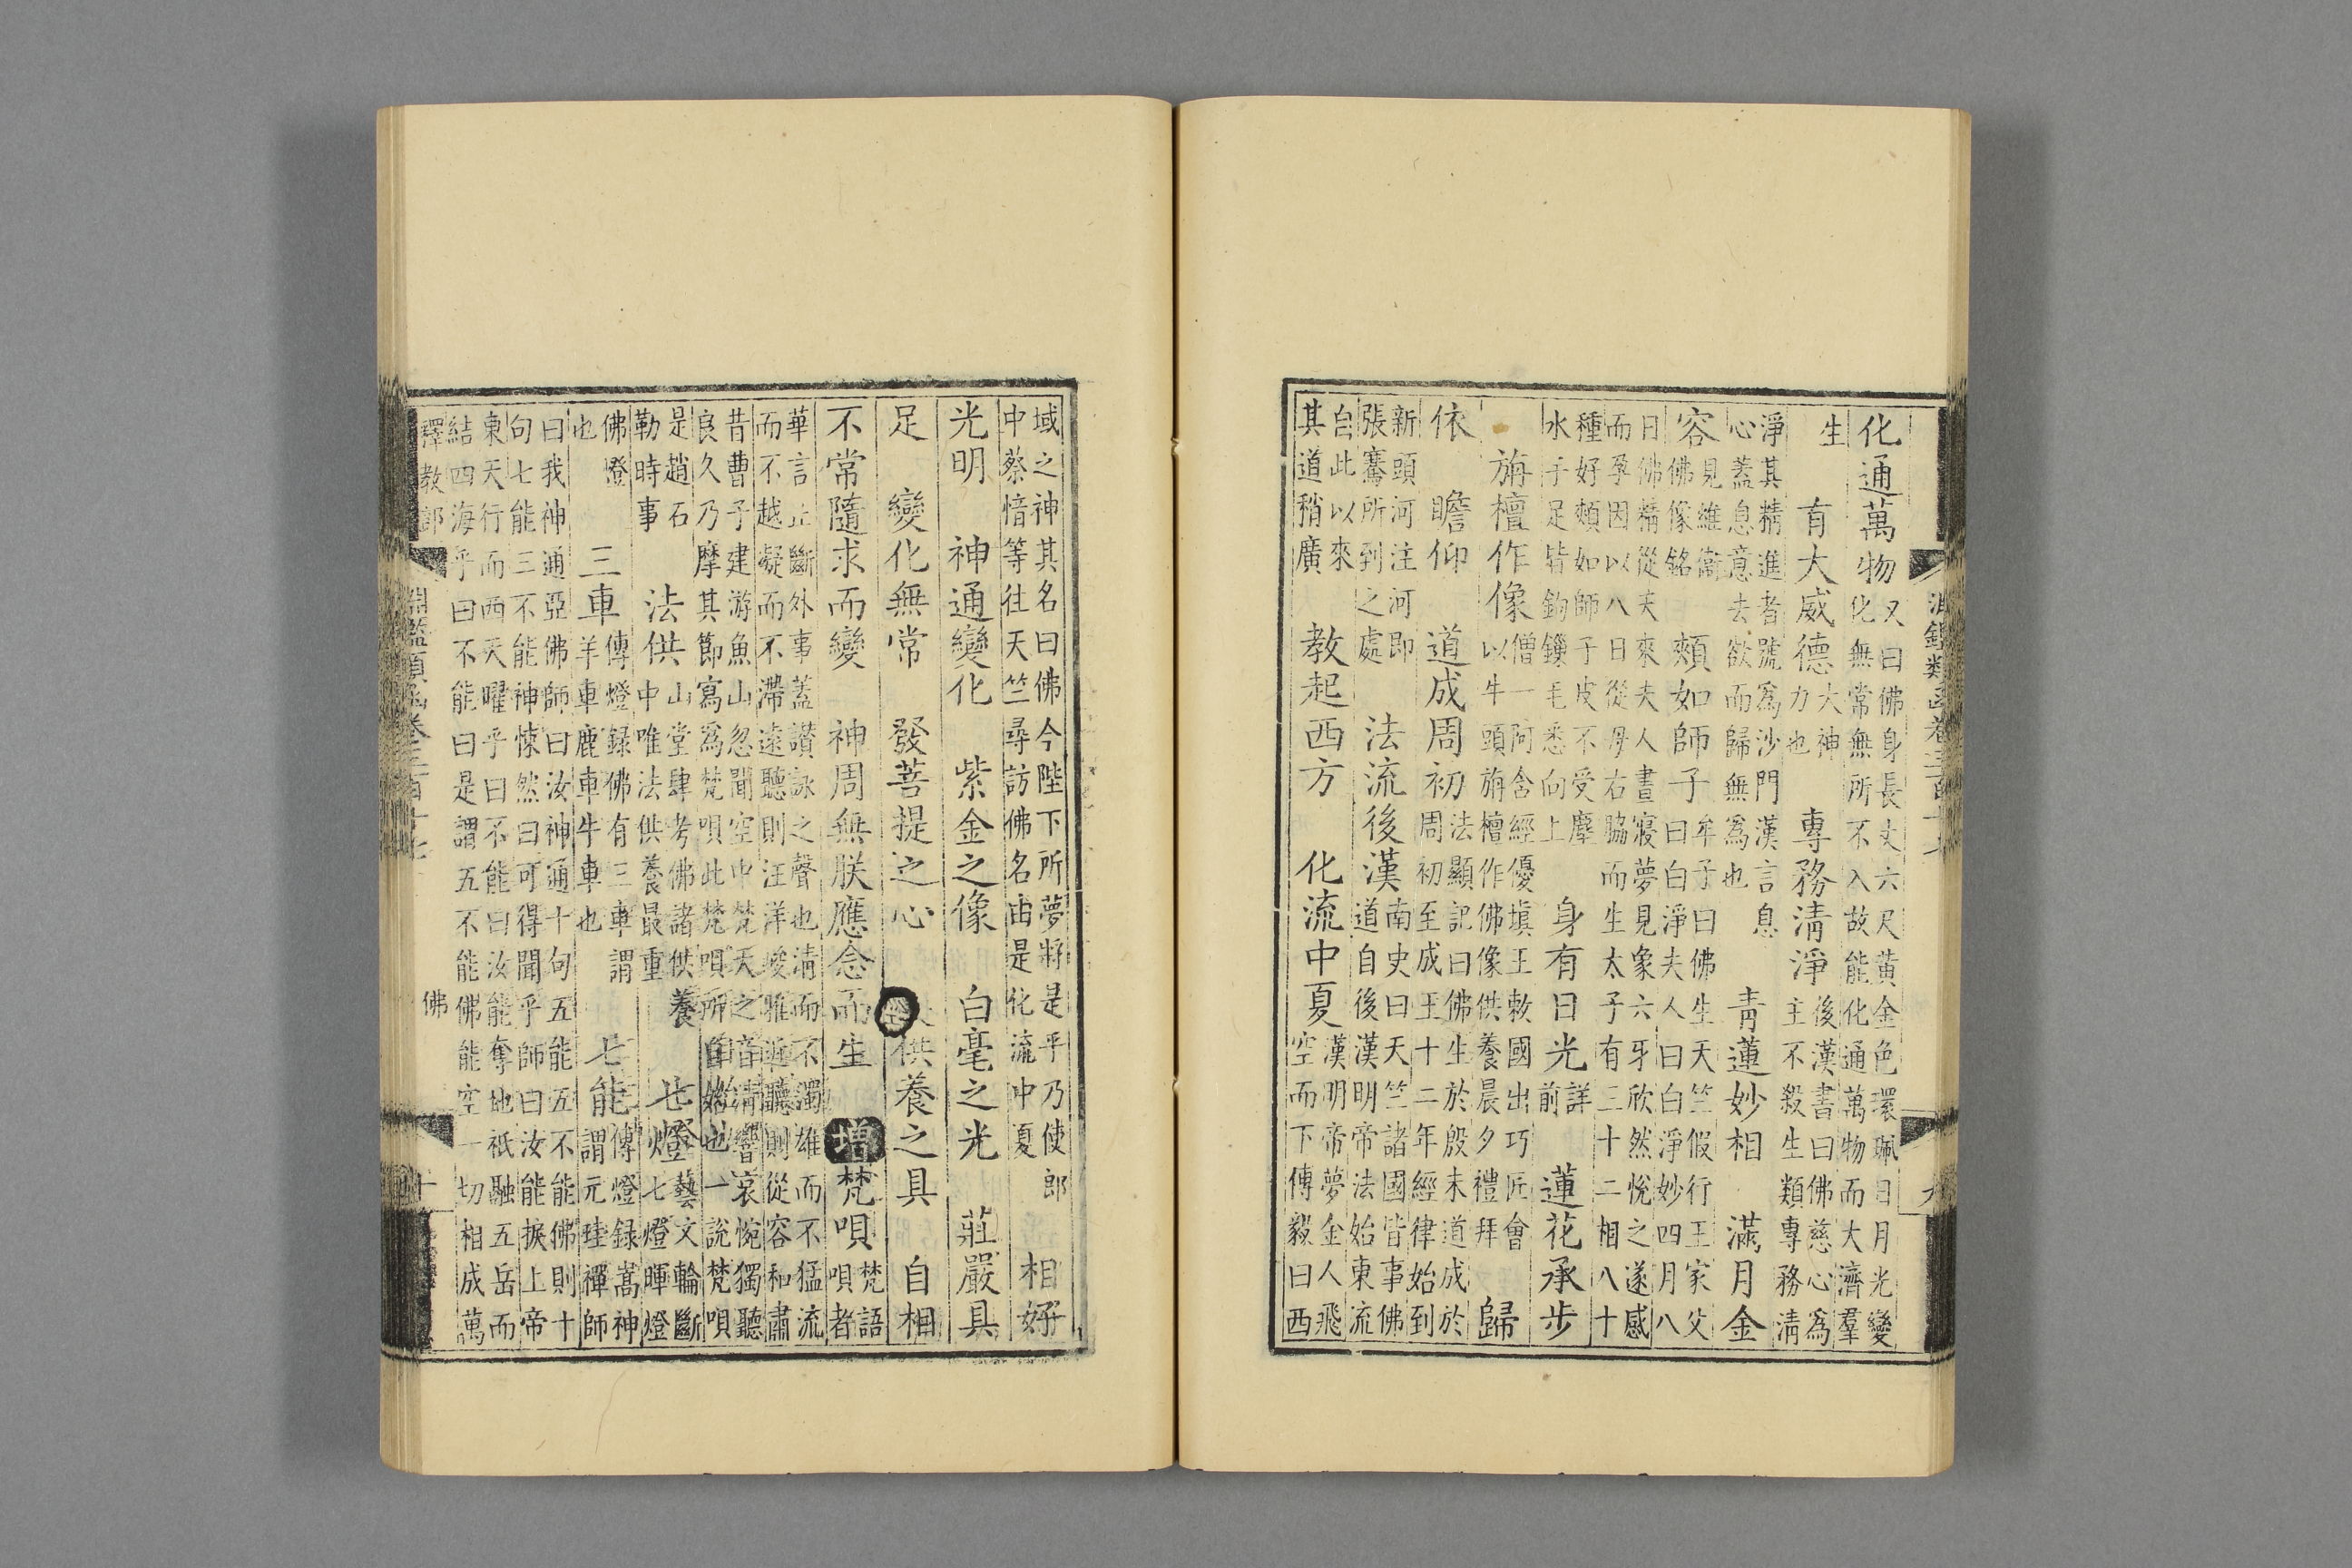 淵鑑類函卷三百十七 九
化通萬物
又曰佛身長丈六尺黃金色環珮日月光變
化無常無所不入故能化通萬物而大濟羣
生 有大威德
大神
力也
專務清淨
後漢書曰佛慈心為
主不殺生類專務清
淨其精進者號爲沙門漢言息
心蓋息意去欲而歸無爲也
青蓮妙相 滿月金
容
見維衞
佛像銘
頰如師子
牟子曰佛生天竺假行王家父
曰白淨夫人曰白淨妙四月八
日佛精從天來夫人晝寢夢見象六牙欣然悅之遂感
而孕因以八日從母右脇而生太子有三十二相八十
種好頰如師子皮不受摩
水手足皆鈎鏁毛悉向上
身有日光
詳
前
蓮花承步
旃檀作像
僧一阿含經優塡王敕國出巧匠會
以牛頭旃檀作佛像供養晨夕禮拜
歸
依 瞻仰 道成周初
法顯記曰佛生於殷末道成於
周初至成王十二年經律始到
新頭河注河即
張騫所到之處
法流後漢
南史曰天竺諸國皆事佛
道自後漢明帝法始東流
自此以來
其道稍廣
教起西方 化流中夏
漢明帝夢金人飛
空而下傳毅曰西
域之神其名曰佛今陛下所夢將是乎乃使郎
中蔡愔等往天竺尋訪佛名由是化流中夏
相好
光明 神通變化 紫金之像 白毫之光 莊嚴具
足 變化無常 發菩提之心 供養之具 自相
不常隨求而變 神周無朕應念而生 增 梵唄
梵語
唄者
華言止斷外事蓋讃詠之聲也清而不濁雄而不猛流
而不越凝而不滯遠聽則汪洋峻雅近聽則從容和肅
昔曹子建游魚山忽聞空中梵天之音清響哀惋獨聽
良久乃摩其節寫爲梵唄此梵唄所自始也一說梵唄
是趙石
勒時事
法供
山堂肆考佛諸供養
中唯法供養最重
七燈
藝文輪斷
七燈暉燈
佛燈
也
三車
傳燈録佛有三車謂
羊車鹿車牛車也
七能
傳燈録嵩神
謂元珪禪師
曰我神通亞佛師曰汝神通十句五能五不能佛則十
句七能三不能神悚然曰可得聞乎師曰汝能捩上帝
東天行而西天曜乎曰不能曰汝能奪地祇融五岳而
結四海乎曰不能曰是謂五不能佛能空一切相成萬
釋教部 淵鑑類函卷三百十七 佛 十